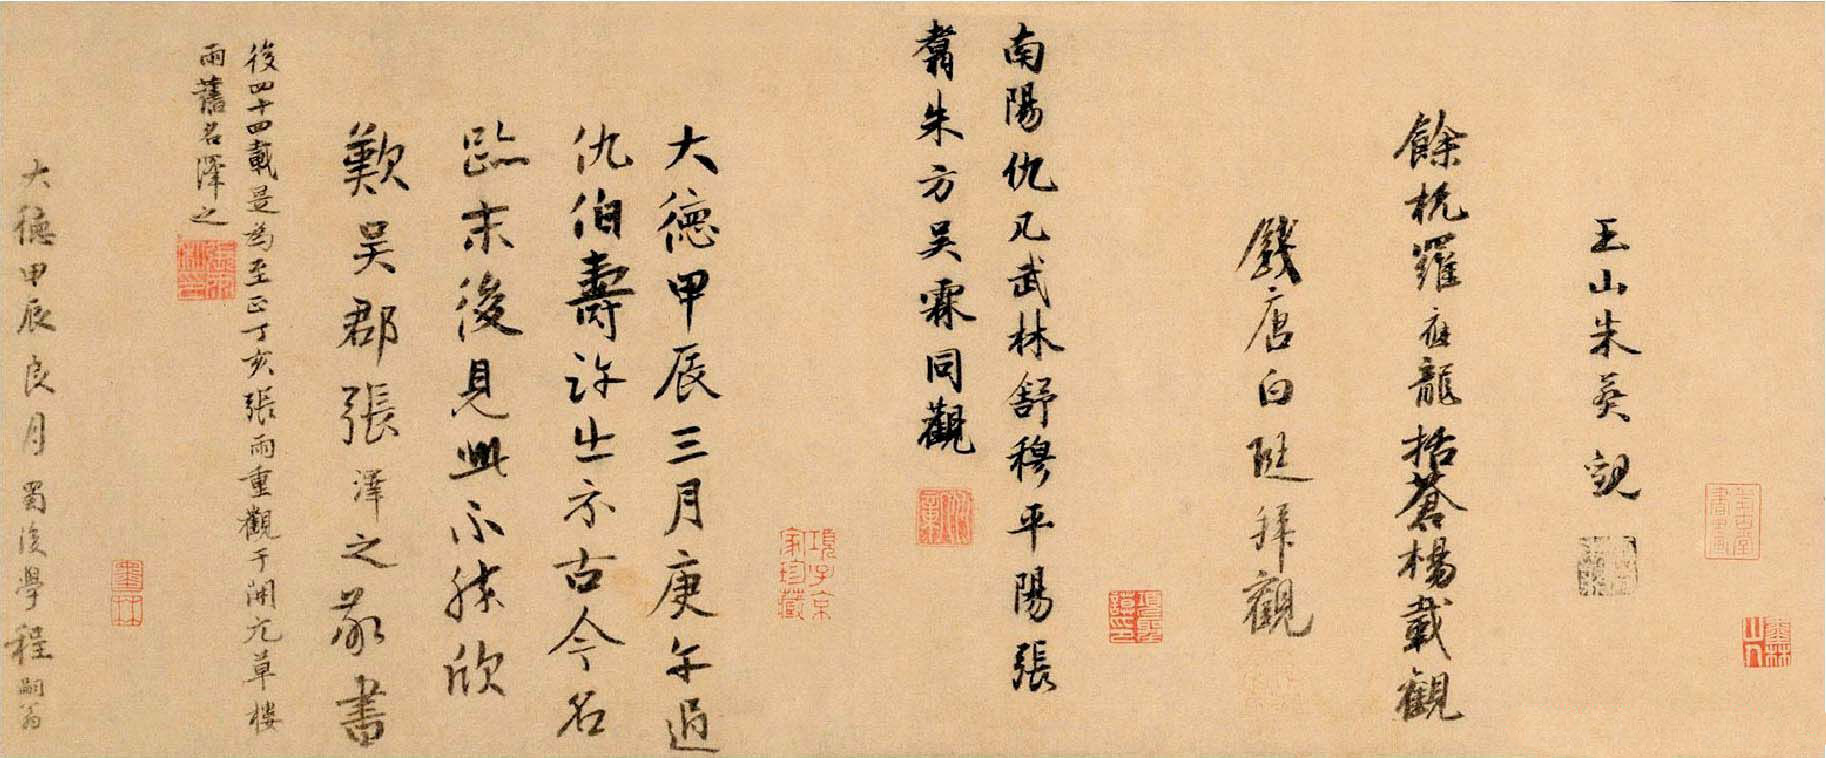 王山朱英觀
餘杭羅志龍括蒼楊載觀
錢唐白珽拜觀
南陽仇几武林舒穆平陽張
翥朱方吳霖同觀
大德甲辰三月庚午過
仇伯壽許出示古今名
蹟末後見此不勝欣
歎吳郡張澤之敬書
後四十四載是為至正丁亥張雨重觀于開元草樓
雨舊名澤之
大德甲辰良月蜀後學程嗣翁
項子京
家珍藏